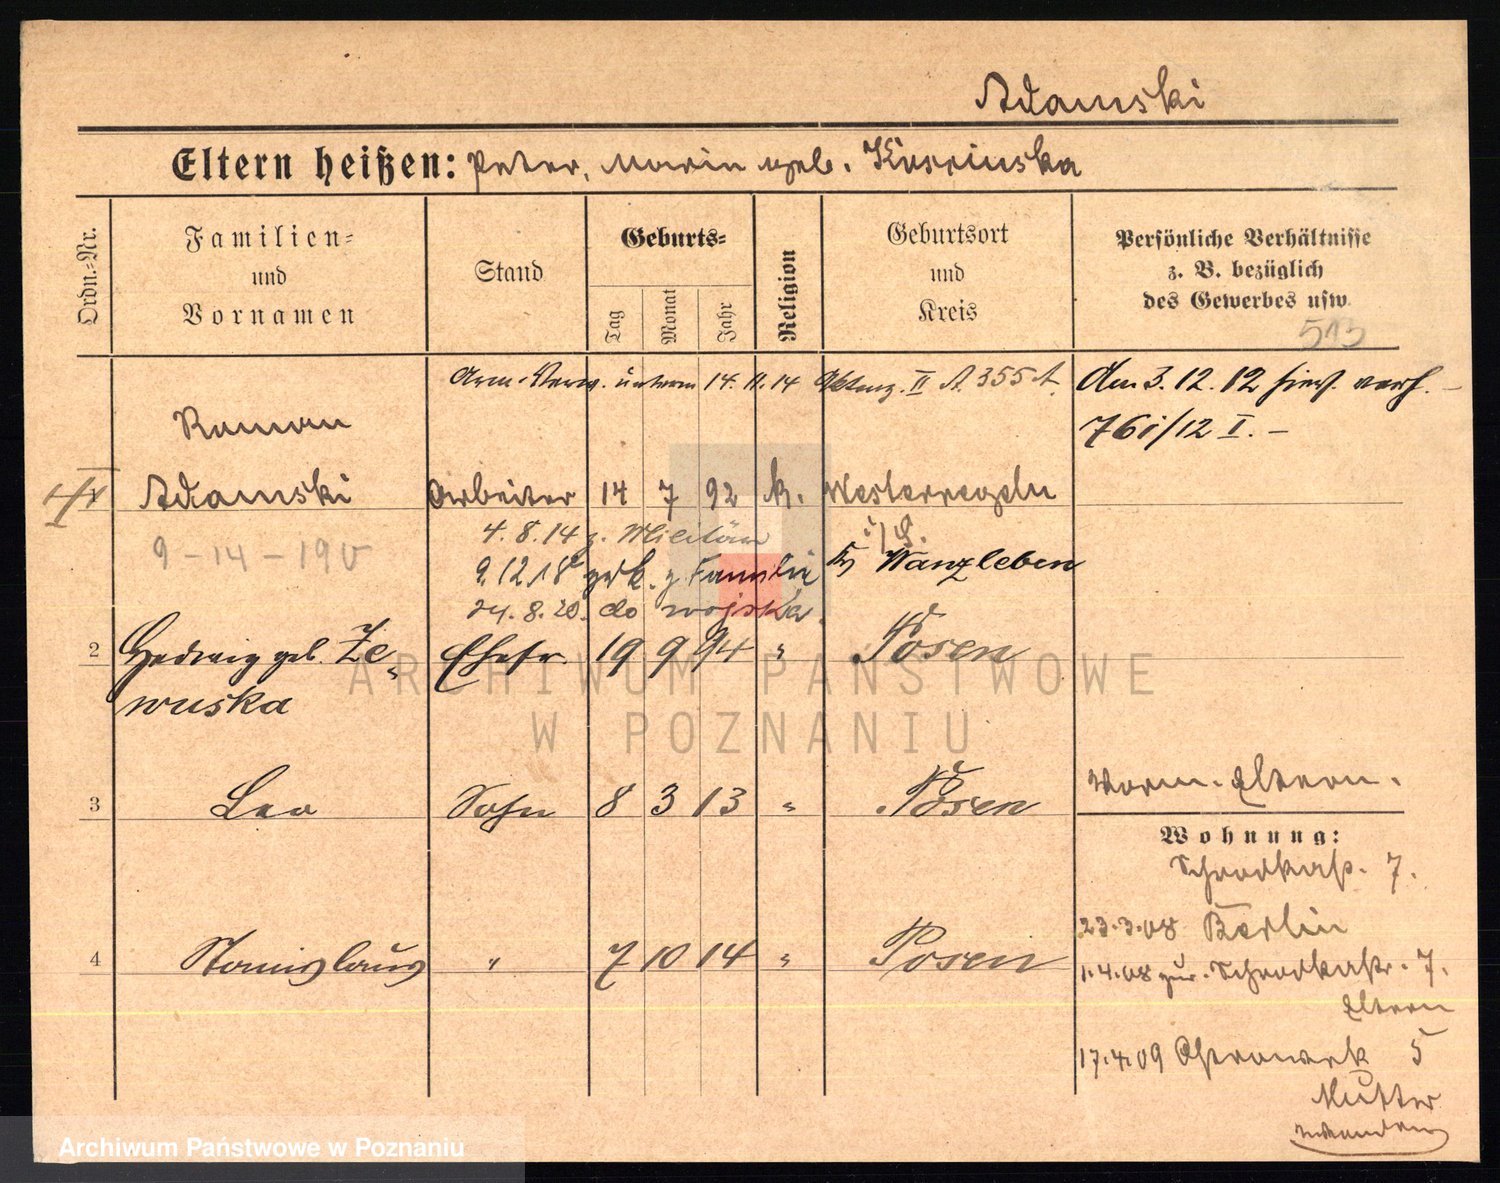 Adamski
Eltern heißen: Peter, Maria geb. Kosrinska
Ordn.=Nr.
Familien=
und
Vornamen
Stand
Geburts=
Tag
Monat
Jahr
Religion
Geburtsort
und
Kreis
Persönliche Verhältnisse
z. B. bezüglich
des Gewerbes usw.
513
14. 11. 14 II A. 355 A.
Am 3. 12. 12 hies. verh. –
761/12 I. –
Roman
Adamski Arbeiter 14 7 92 k. Westeregeln
9 - 14 - 190
4. 8. 14 z. Militär
9. 12 18 zrk. z. Familie Wanzleben
24. 8. 20. do wojska.
2 Hedwig geb. Ze- Ehefr. 19 9 94 " Posen
wuska
3 Leo Sohn 8 3 13 " Posen
Eltern.
Wohnung:
Schrodkastr. 7.
23. 3. 08 Berlin
4 Stanislaus " 7 10 14 " Posen
1. 4. 08 zur. Schrodkastr. 7.
Eltern
17. 4. 09 Ostrowek 5
Mutter
wenden
ARCHIWUM PAŃSTWOWE
W POZNANIU
Archiwum Państwowe w Poznaniu